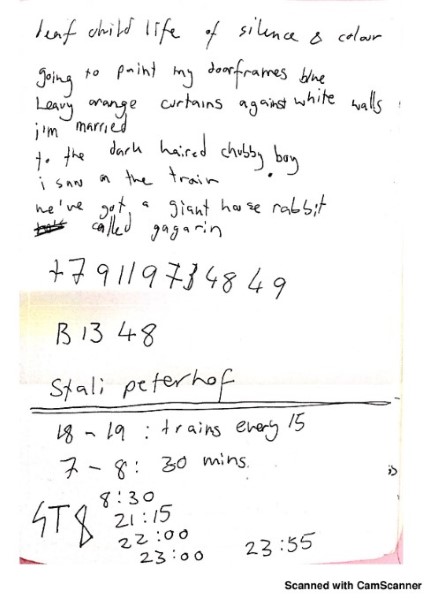 deaf child life of silence & colour
going to paint my doorframes blue
heavy orange curtains against white walls
i'm married
to the dark haired chubby boy
i saw on the train
we've got a giant house rabbit
called gagarin
+79119734849
B1348
Stali peterhof
18-19: trains every 15
7-8: 30 mins.
8:30
21:15
22:00
23:00 23:55
Scanned with CamScanner